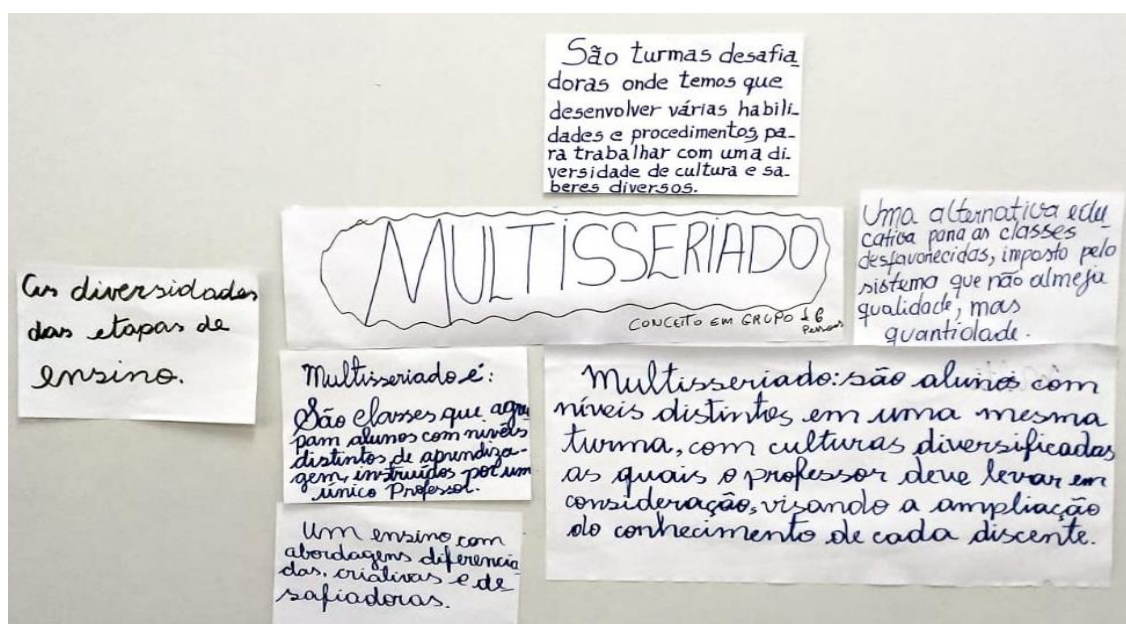 São turmas desafia
doras onde temos que
desenvolver várias habili-
dades e procedimentos, pa-
ra trabalhar com uma di-
versidade de cultura e sa-
beres diversos.
MULTISSERIADO
CONCEITO EM GRUPO
Pessoas
Uma alternativa edu
cativa para as classes
desfavorecidas, imposto pelo
sistema que não almeja
qualidade, mas
quantidade.
As diversidades
das etapas de
ensino.
Multisseriado é:
São classes que agru
pam alunos com níveis
distintos de aprendiza-
gem, instruídos por um
único Professor.
Multisseriado: são alunos com
níveis distintos em uma mesma
turma, com culturas diversificadas
as quais o professor deve levar em
consideração, visando a ampliação
do conhecimento de cada discente.
Um ensino com
abordagens diferencia
das, criativas e de
safiadoras.